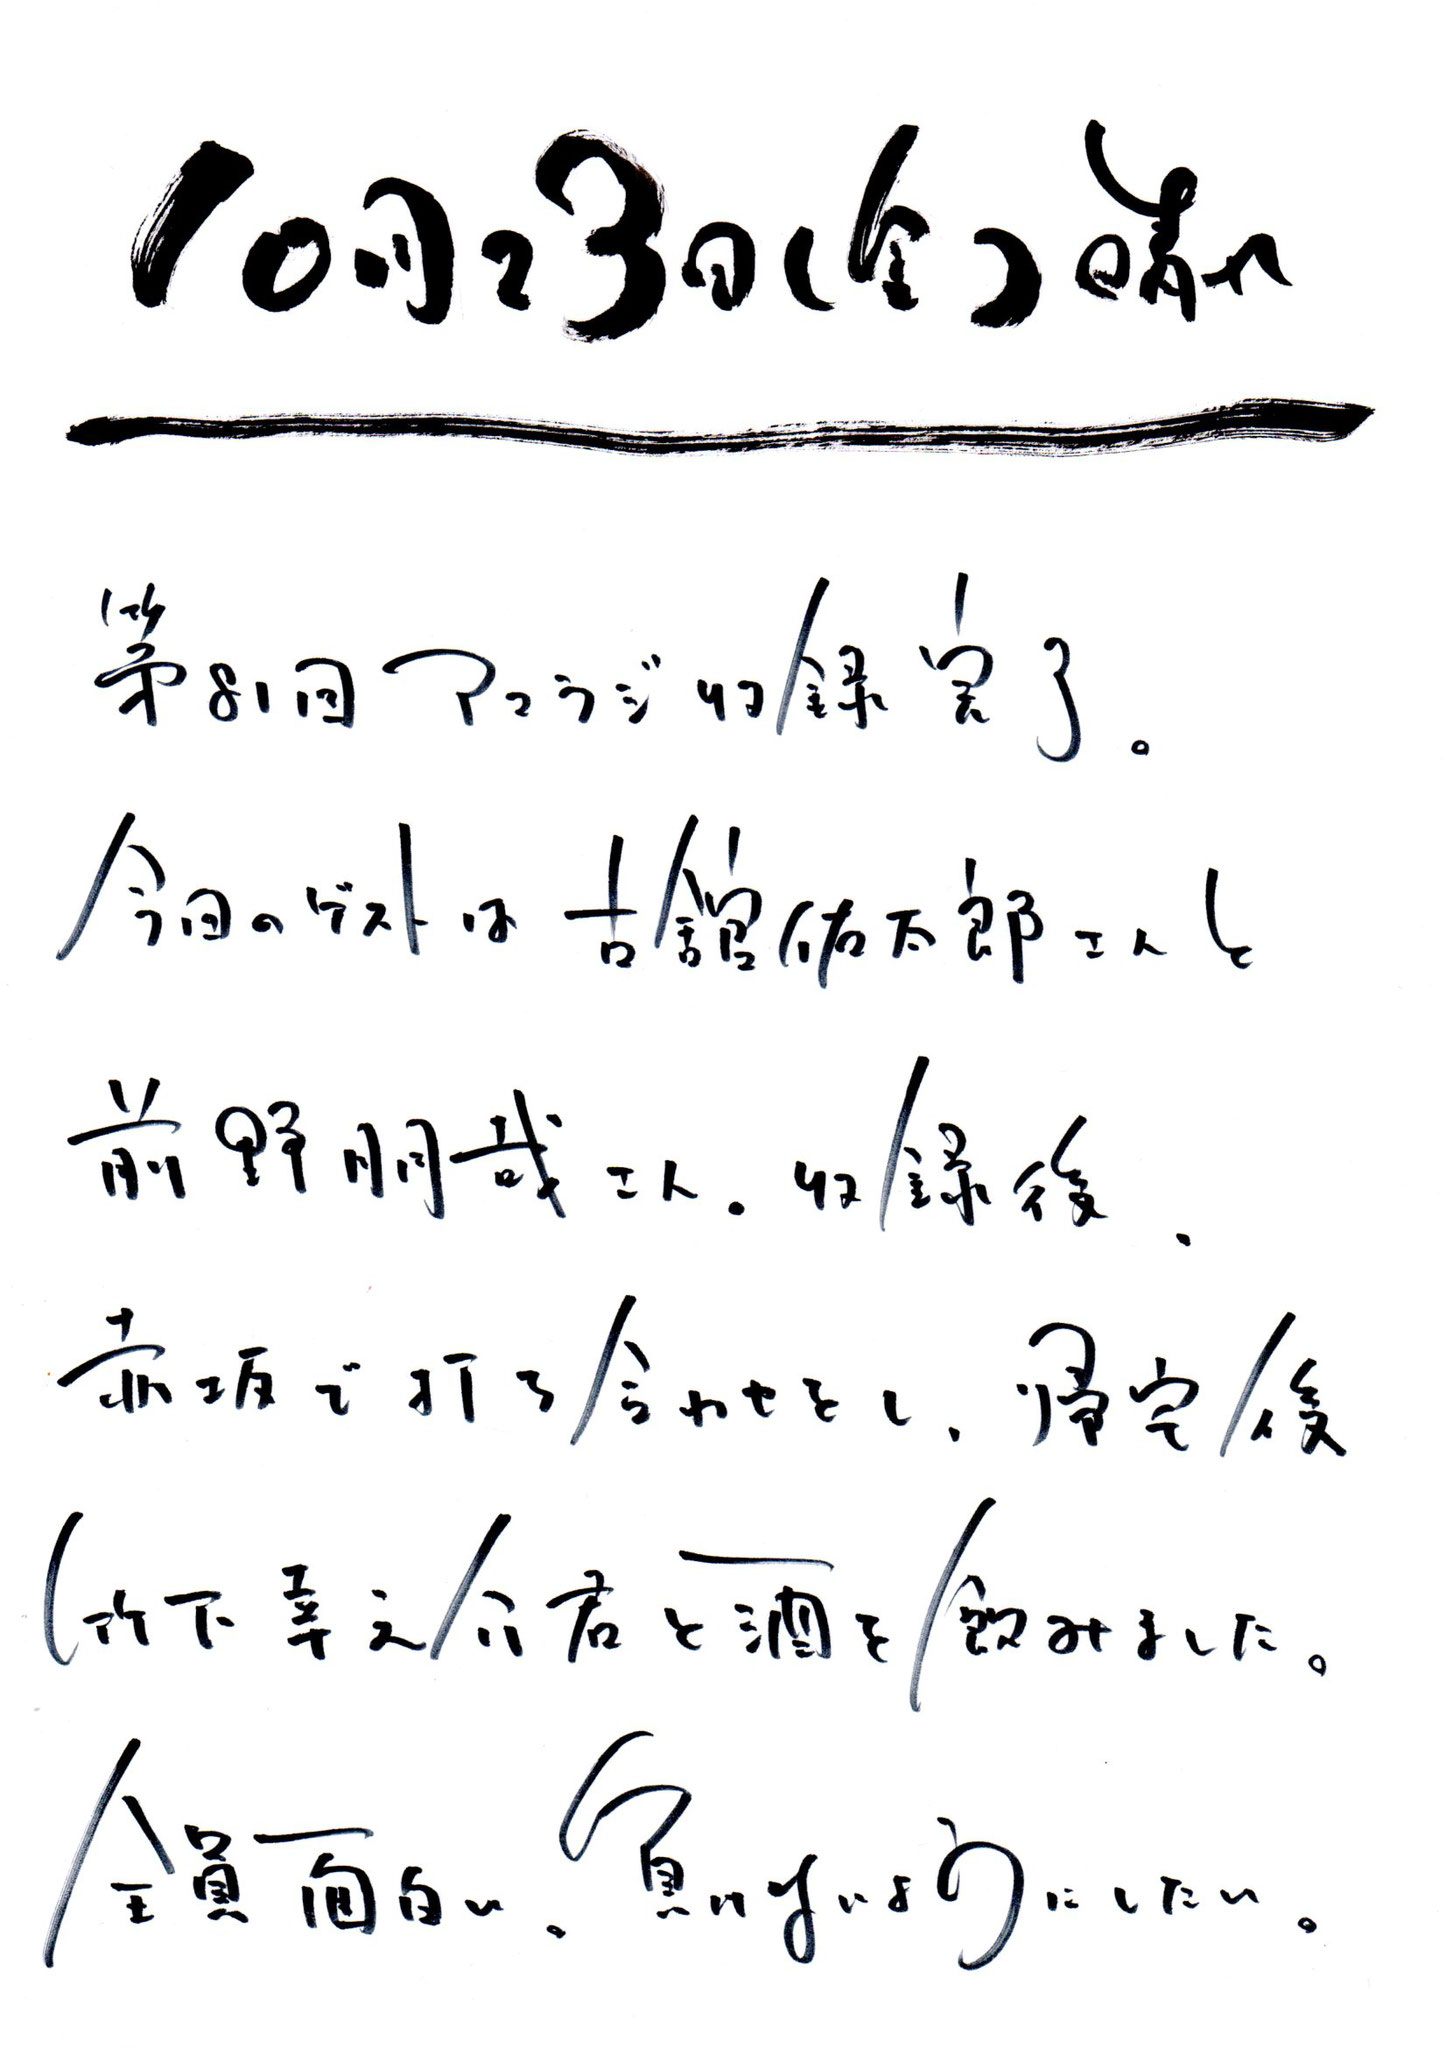 10月23日(金)晴れ
第81回アコラジ収録完了。
今回のゲストは古舘佑太郎さんと
前野朋哉さん。収録後、
赤坂で打ち合わせをし、帰宅後
竹下幸之介君と酒を飲みました。
全員面白い。負けないようにしたい。